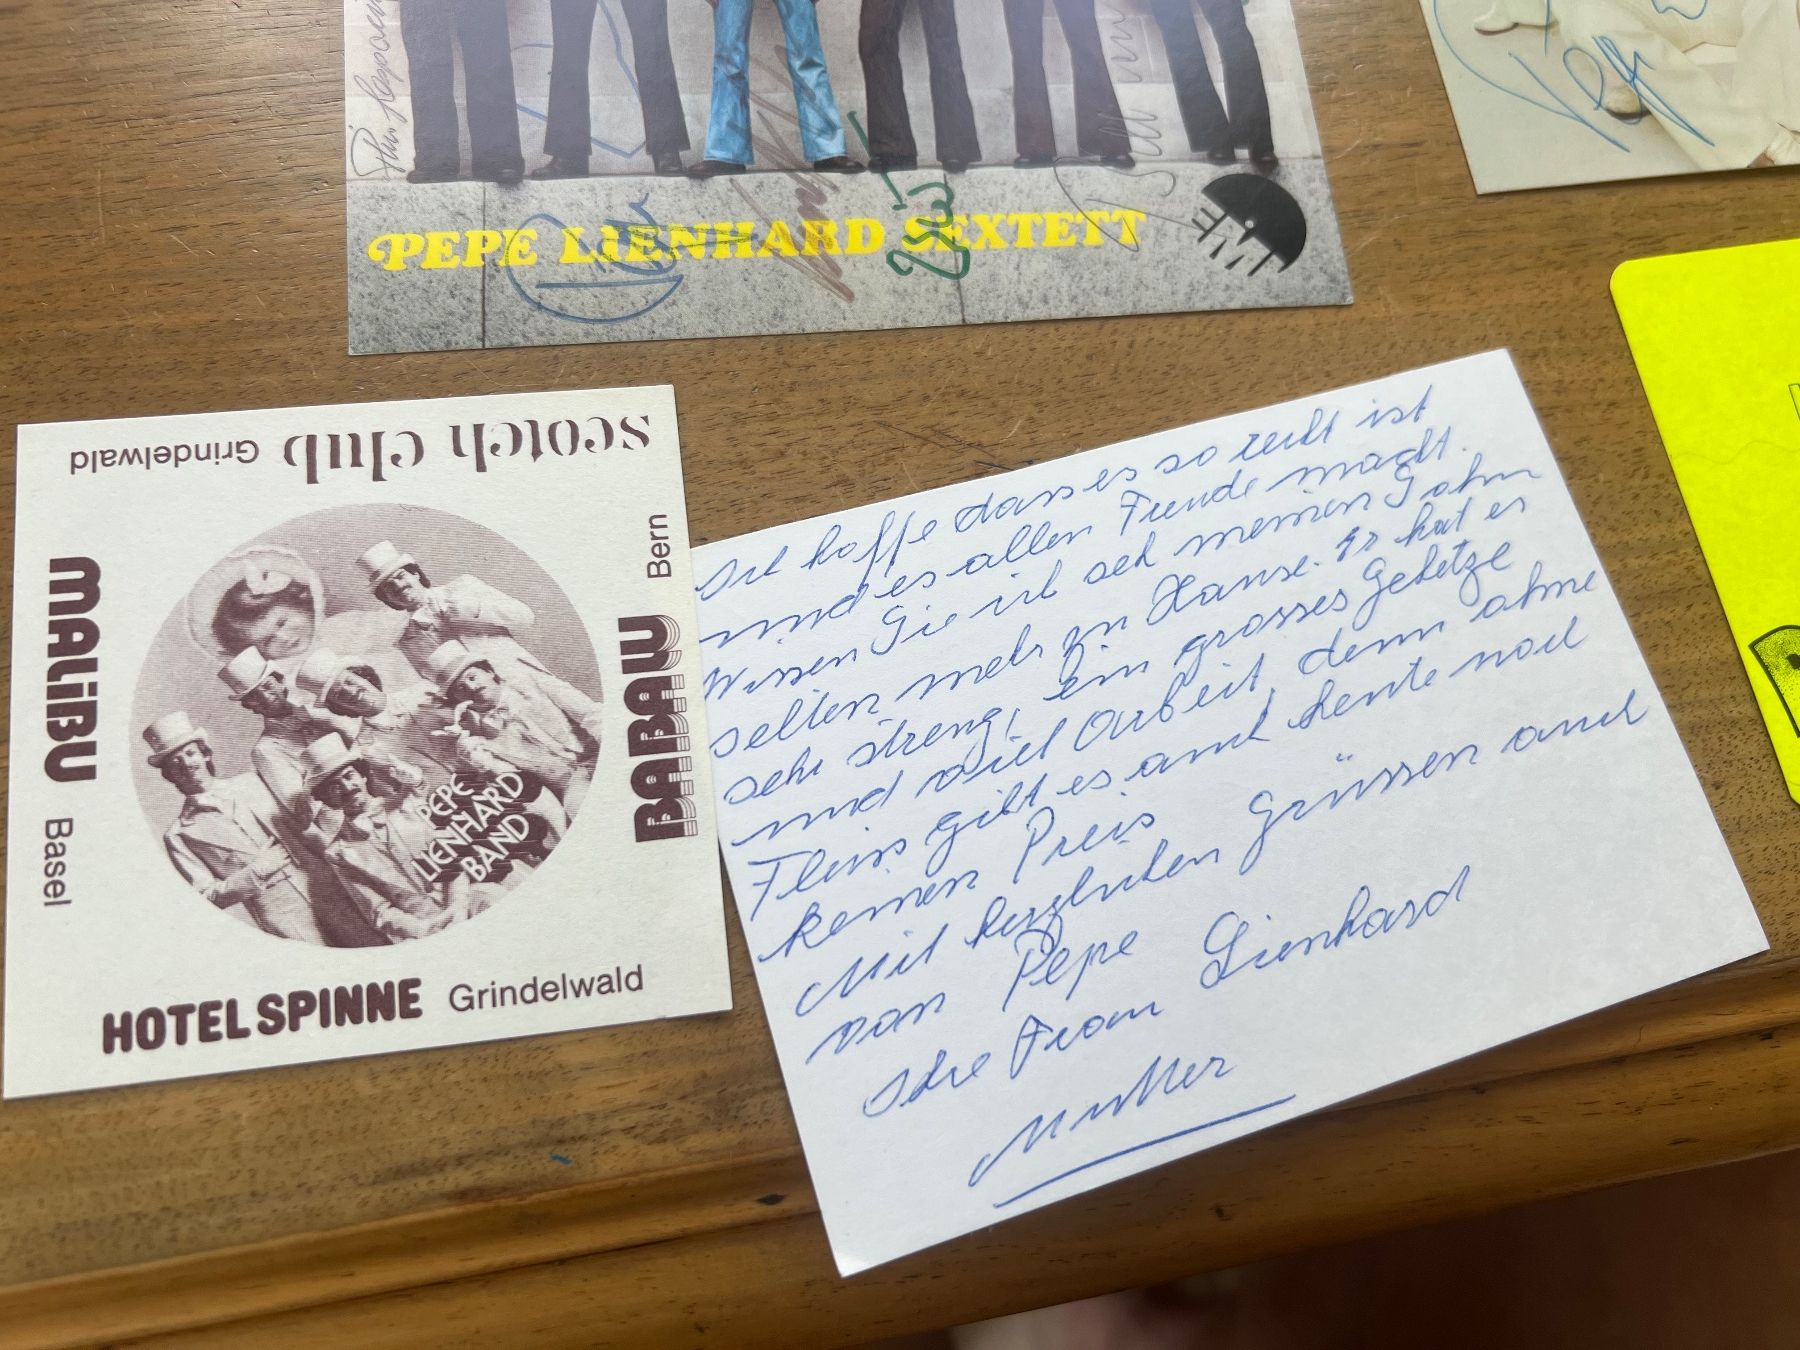 PEPE LIENHARD SEXTETT
EMI
scotch club Grindelwald
MALiBU Basel
BABALU Bern
PEPE
LIENHARD
BAND
HOTEL SPINNE Grindelwald
Ich hoffe dass es so recht ist
und es allen Freude macht.
Wissen Sie ich seh meinen Sohn
selten mehr zu Hause. Er hat es
sehr streng, ein grosses Gehetze
und viel Arbeit, denn ohne
Fleiss gibt es auch heute noch
keinen Preis
Mit herzlichen Grüssen auch
von Pepe Lienhard
Ihre Frau
Mutter